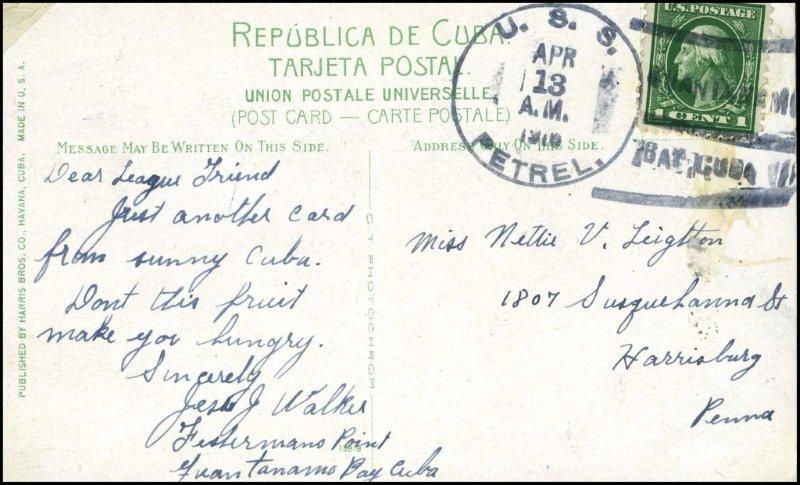 REPÚBLICA DE CUBA.
TARJETA POSTAL.
UNION POSTALE UNIVERSELLE.
(POST CARD — CARTE POSTALE)
MESSAGE MAY BE WRITTEN ON THIS SIDE.
ADDRESS ONLY ON THIS SIDE.
PUBLISHED BY HARRIS BROS. CO., HAVANA, CUBA. MADE IN U. S. A.
C T PHOTOCHROM
U. S. S.
APR
13
A.M.
PETREL.
U.S. POSTAGE
1 CENT 1
BAY CUBA
Dear League Friend
Just another card
from sunny Cuba.
Dont this fruit
make you hungry.
Sincerely
Jesse J Walker
Fishermans Point
Guantanamo Bay Cuba
Miss Nettie V. Leightton
1807 Susquehanna St
Harrisburg
Penna